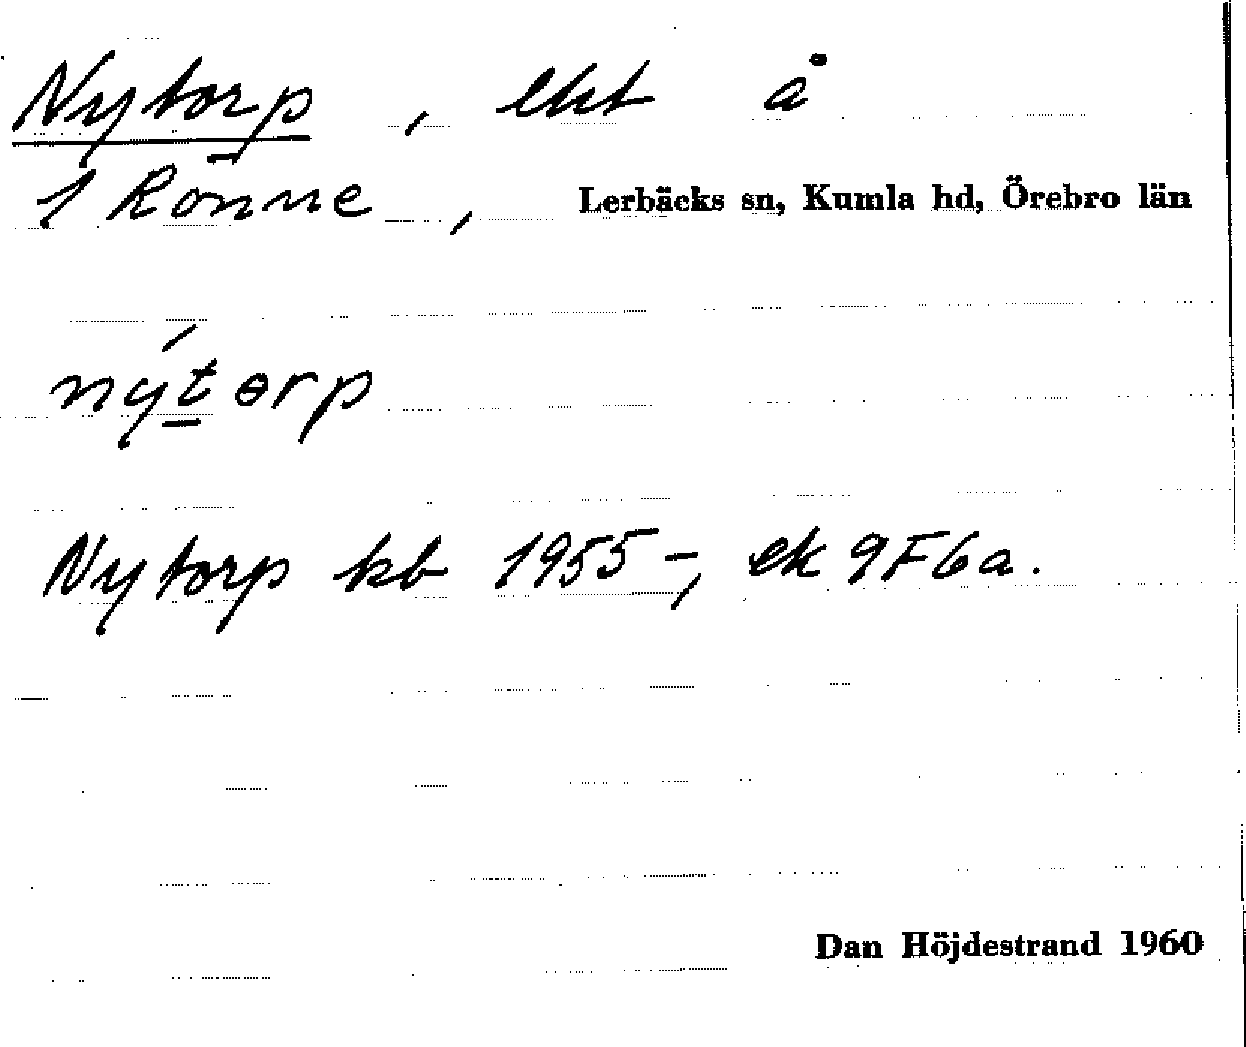 Nytorp, lht å
1 Rönne, Lerbäcks sn, Kumla hd, Örebro län
nýtɵrp
Nytorp kb 1955-, ek 9F6a.
Dan Höjdestrand 1960